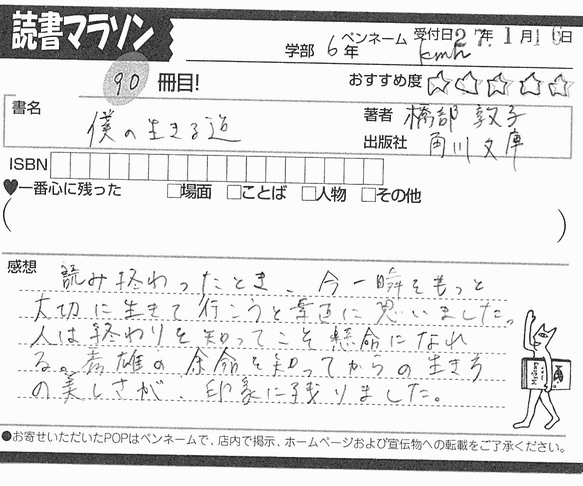 読書マラソン
学部 6年 ペンネーム kmh 受付日27年1月16日
90冊目!
おすすめ度 ☆☆☆☆☆
書名 僕の生きる道
著者 橋部 敦子
出版社 角川文庫
ISBN
♥一番心に残った □場面 □ことば □人物 □その他
( )
感想
読み終わったとき、今一瞬をもっと
大切に生きて行こうと素直に思いました。
人は終わりを知ってこそ懸命になれ
る。秀雄の余命を知ってからの生き方
の美しさが、印象に残りました。
●お寄せいただいたPOPはペンネームで、店内で掲示、ホームページおよび宣伝物への転載をご了承ください。